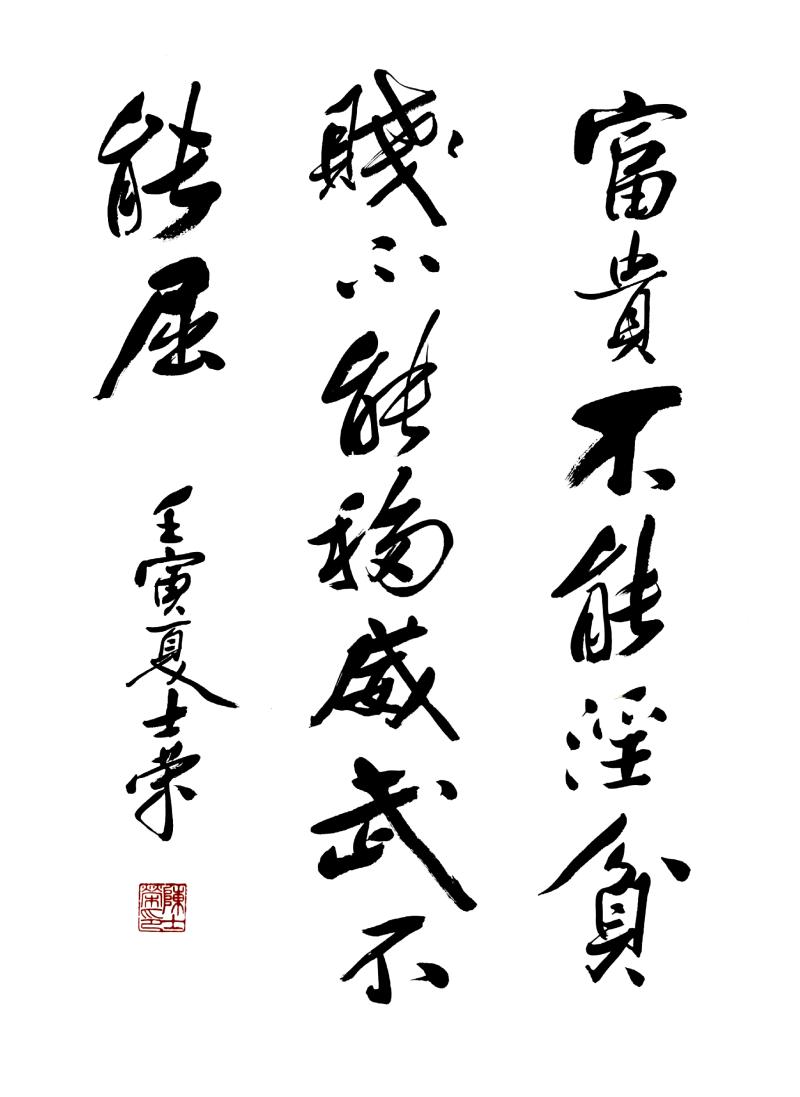 富貴不能淫貧
賤不能移威武不
能屈
壬寅夏士榮
陳士榮印